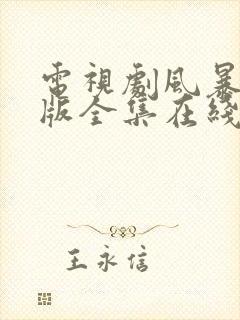 電視劇風暴
版全集在綫
王永信